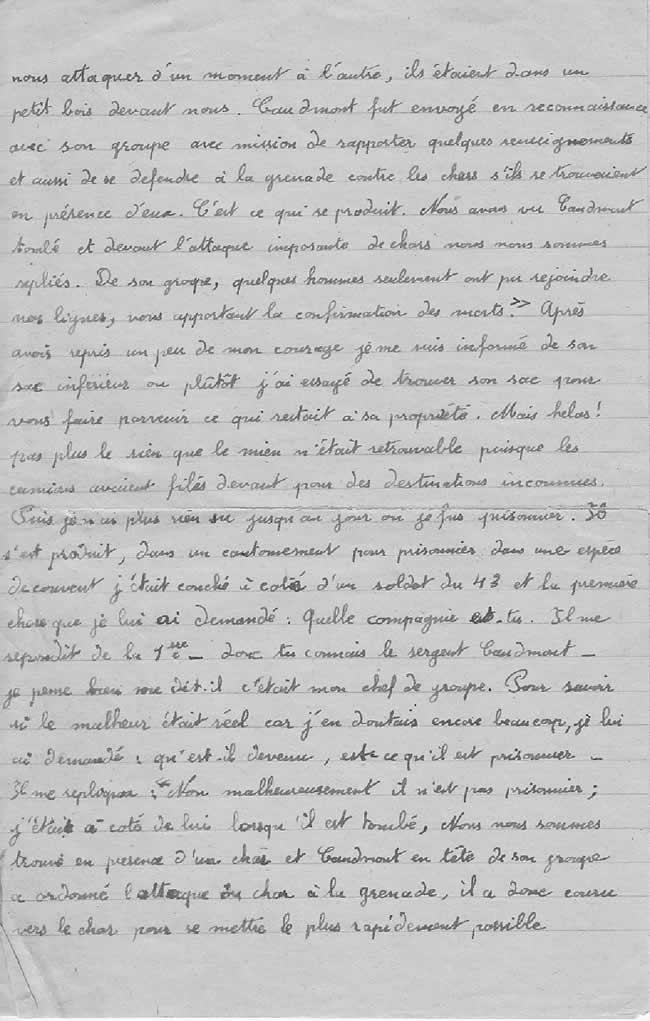 nous attaquer d'un moment à l'autre, ils étaient dans un
petit bois devant nous. Caudmont fut envoyé en reconnaissance
avec son groupe avec mission de rapporter quelques renseignements
et aussi de se defendre à la grenade contre les chars s'ils se trouvaient
en présence d'eux. C'est ce qui se produit. Nous avons vu Caudmont
tombé et devant l'attaque imposante de chars nous nous sommes
repliés. De son groupe, quelques hommes seulement ont pu rejoindre
nos lignes, nous apportant la confirmation des morts. >> Après
avoir repris un peu de mon courage je me suis informé de son
sac inférieur ou plûtôt j'ai essayé de trouver son sac pour
vous faire parvenir ce qui restait à sa propriété. Mais helas!
pas plus le sien que le mien n'était retrouvable puisque les
camions avaient filés devant pour des destinations inconnues.
Puis je n'ai plus rien su jusqu'au jour où je fus prisonnier. Là
s'est produit, dans un cantonnement pour prisonnier dans une espèce
de couvent j'était couché à coté d'un soldat du 43 et la première
chose que je lui ai demandé : Quelle compagnie es-tu. Il me
repondit de la 1ere _ donc tu connais le sergent Caudmont _
je pense bien me dit-il c'était mon chef de groupe. Pour savoir
si le malheur était réel car j'en doutais encore beaucoup, je lui
ai demandé : qu'est-il devenu, est-ce qu'il est prisonnier _
Il me repliqua : "Non malheureusement il n'est pas prisonnier ;
j'était à coté de lui lorsqu'il est tombé, Nous nous sommes
trouvé en presence d'un char et Caudmont en tête de son groupe
a ordonné l'attaque du char à la grenade, il a donc couru
vers le char pour se mettre le plus rapidement possible